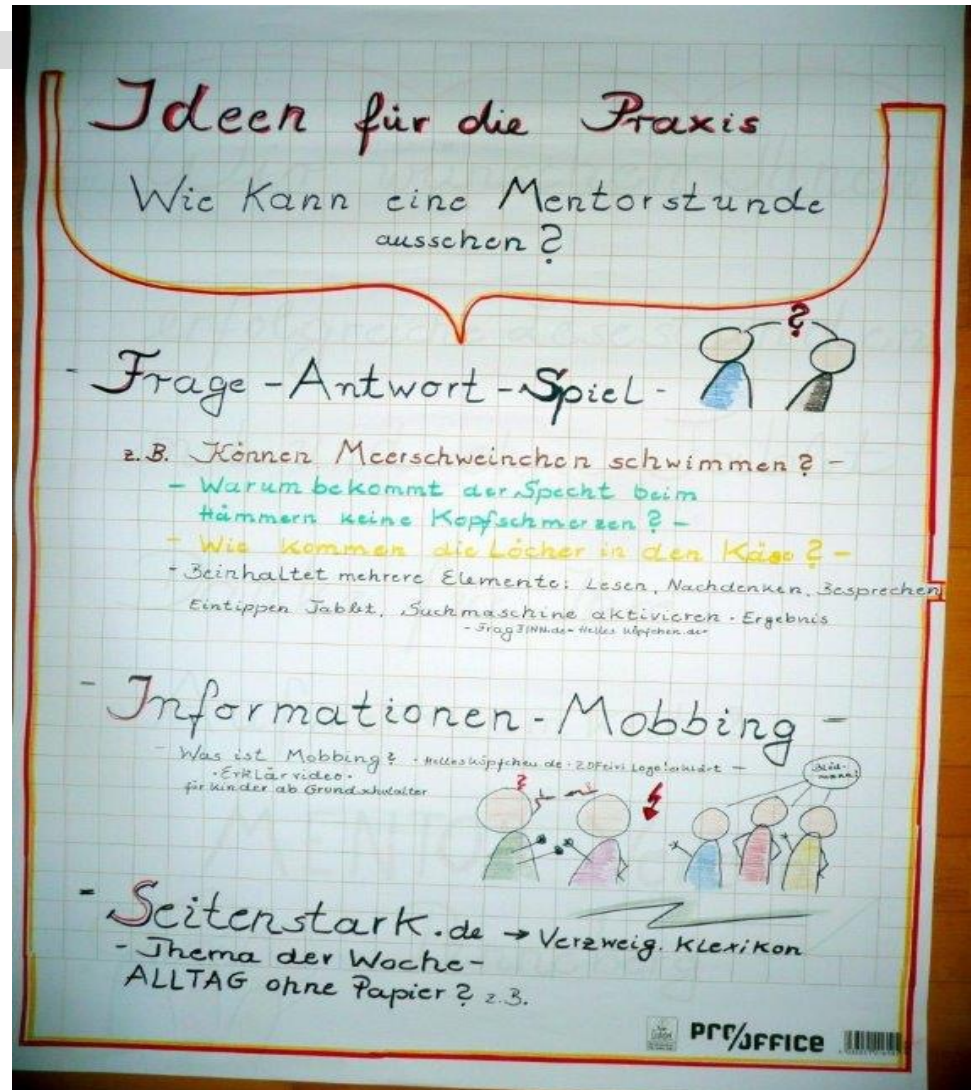 Ideen für die Praxis
Wie kann eine Mentorstunde
aussehen?
?
- Frage-Antwort-Spiel-
z.B. Können Meerschweinchen schwimmen? -
- Warum bekommt der Specht beim
Hämmern keine Kopfschmerzen? -
- Wie kommen die Löcher in den Käse? -
- Beinhaltet mehrere Elemente: Lesen, Nachdenken, Besprechen
Eintippen Tablet, Suchmaschine aktivieren - Ergebnis
- FragFINN.de - Helles Köpfchen.de -
- Informationen-Mobbing -
- Was ist Mobbing? - Helles Köpfchen.de - ZDFtivi Logo! erklärt -
- Erklärvideo -
für Kinder ab Grundschulalter
?
Blöd-
mann!
- Seitenstark.de → Verzweig. Klexikon
- Thema der Woche -
ALLTAG ohne Papier? z.B.
PRO/OFFICE